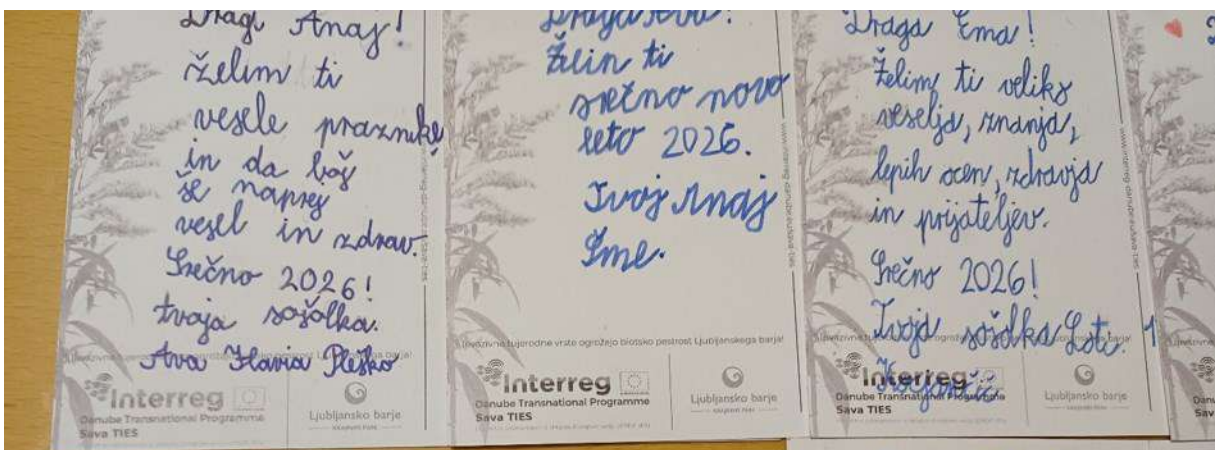 Dragi Anaj!
želim ti
vesele praznike
in da boš
še naprej
vesel in zdrav.
Srečno 2026!
tvoja sošolka.
Ava Flavia Pleško
Interreg
Danube Transnational Programme
Sava TIES
Ljubljansko barje
KRAJINSKI PARK
Draga
Želin ti
srečno novo
leto 2026.
Tvoj Anaj
Šme.
Invazivne tujerodne vrste ogrožajo biotsko pestrost Ljubljanskega barja!
Interreg
Danube Transnational Programme
Sava TIES
Ljubljansko barje
KRAJINSKI PARK
Draga Ema!
Želim ti veliko
veselja, znanja,
lepih ocen, zdravja
in prijateljev.
Srečno 2026!
Tvoja sošolka Loti.
Interreg
Danube Transnational Programme
Sava TIES
Ljubljansko barje
KRAJINSKI PARK